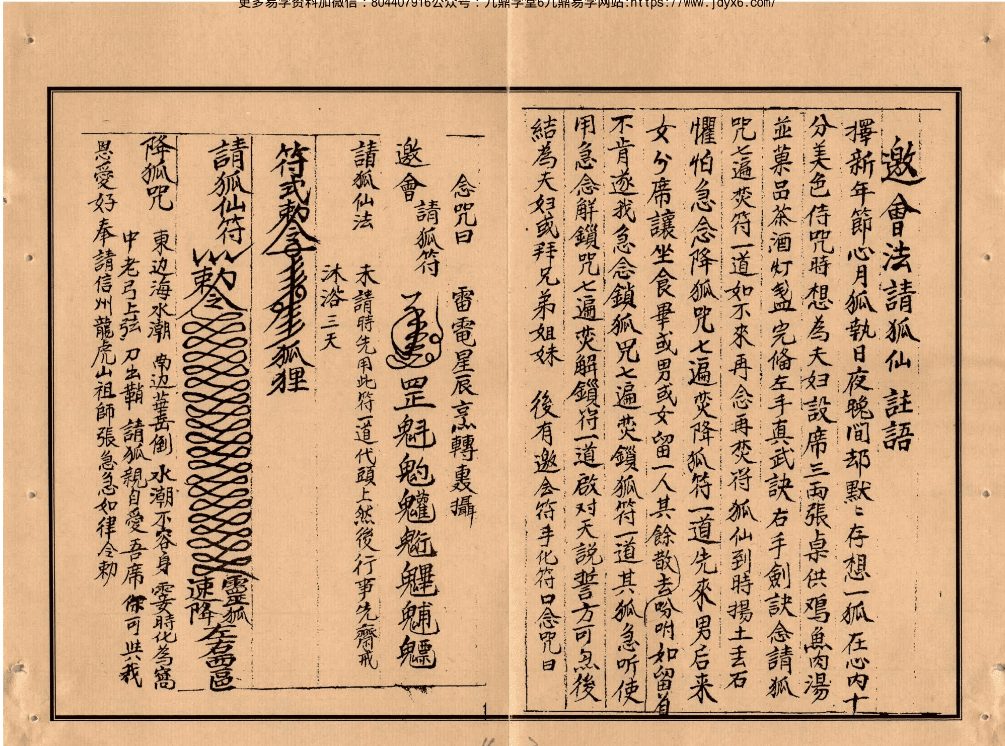 更多易学资料加微信：804407916公众号：九鼎学堂6九鼎易学网站:https://www.jdyx6.com/
邀會法請狐仙 註語
擇新年節心月狐執日夜晚間却默〻存想一狐在心内十
分美色侍咒時想為夫妇設席三両張桌供鸡魚肉湯
並菓品茶酒灯盞完俻左手真武訣右手劍訣念請狐
咒七遍焚符一道如不來再念再焚得狐仙到時揚土丢石
懼怕急念降狐咒七遍焚降狐符一道先來男后来
女分席讓坐食畢或男或女留一人其餘散去吩咐如留首
不肯遂我急念鎖狐咒七遍焚鎖狐符一道其狐急听使
用急念解鎖咒七遍焚解鎖符一道啟对天説誓方可為後
結為夫妇或拜兄弟姐妹 後有邀会符手化符口念咒曰
念咒曰 雷電星辰 轉 攝
邀會 請狐符 罡魁魀
請狐仙法 未請時先用此符一道代頭上然後行事先齋戒
沐浴三天
符式 敕令 狐狸
請狐仙符 敕令 靈狐速降
降狐咒 東边海水潮 南边華岳倒 水潮不容身 霎時化為窩
中老弓上弦 刀出鞘 請狐親自愛吾席 你可與我
恩愛好 奉請信州龍虎山祖師張急急如律令勅
1